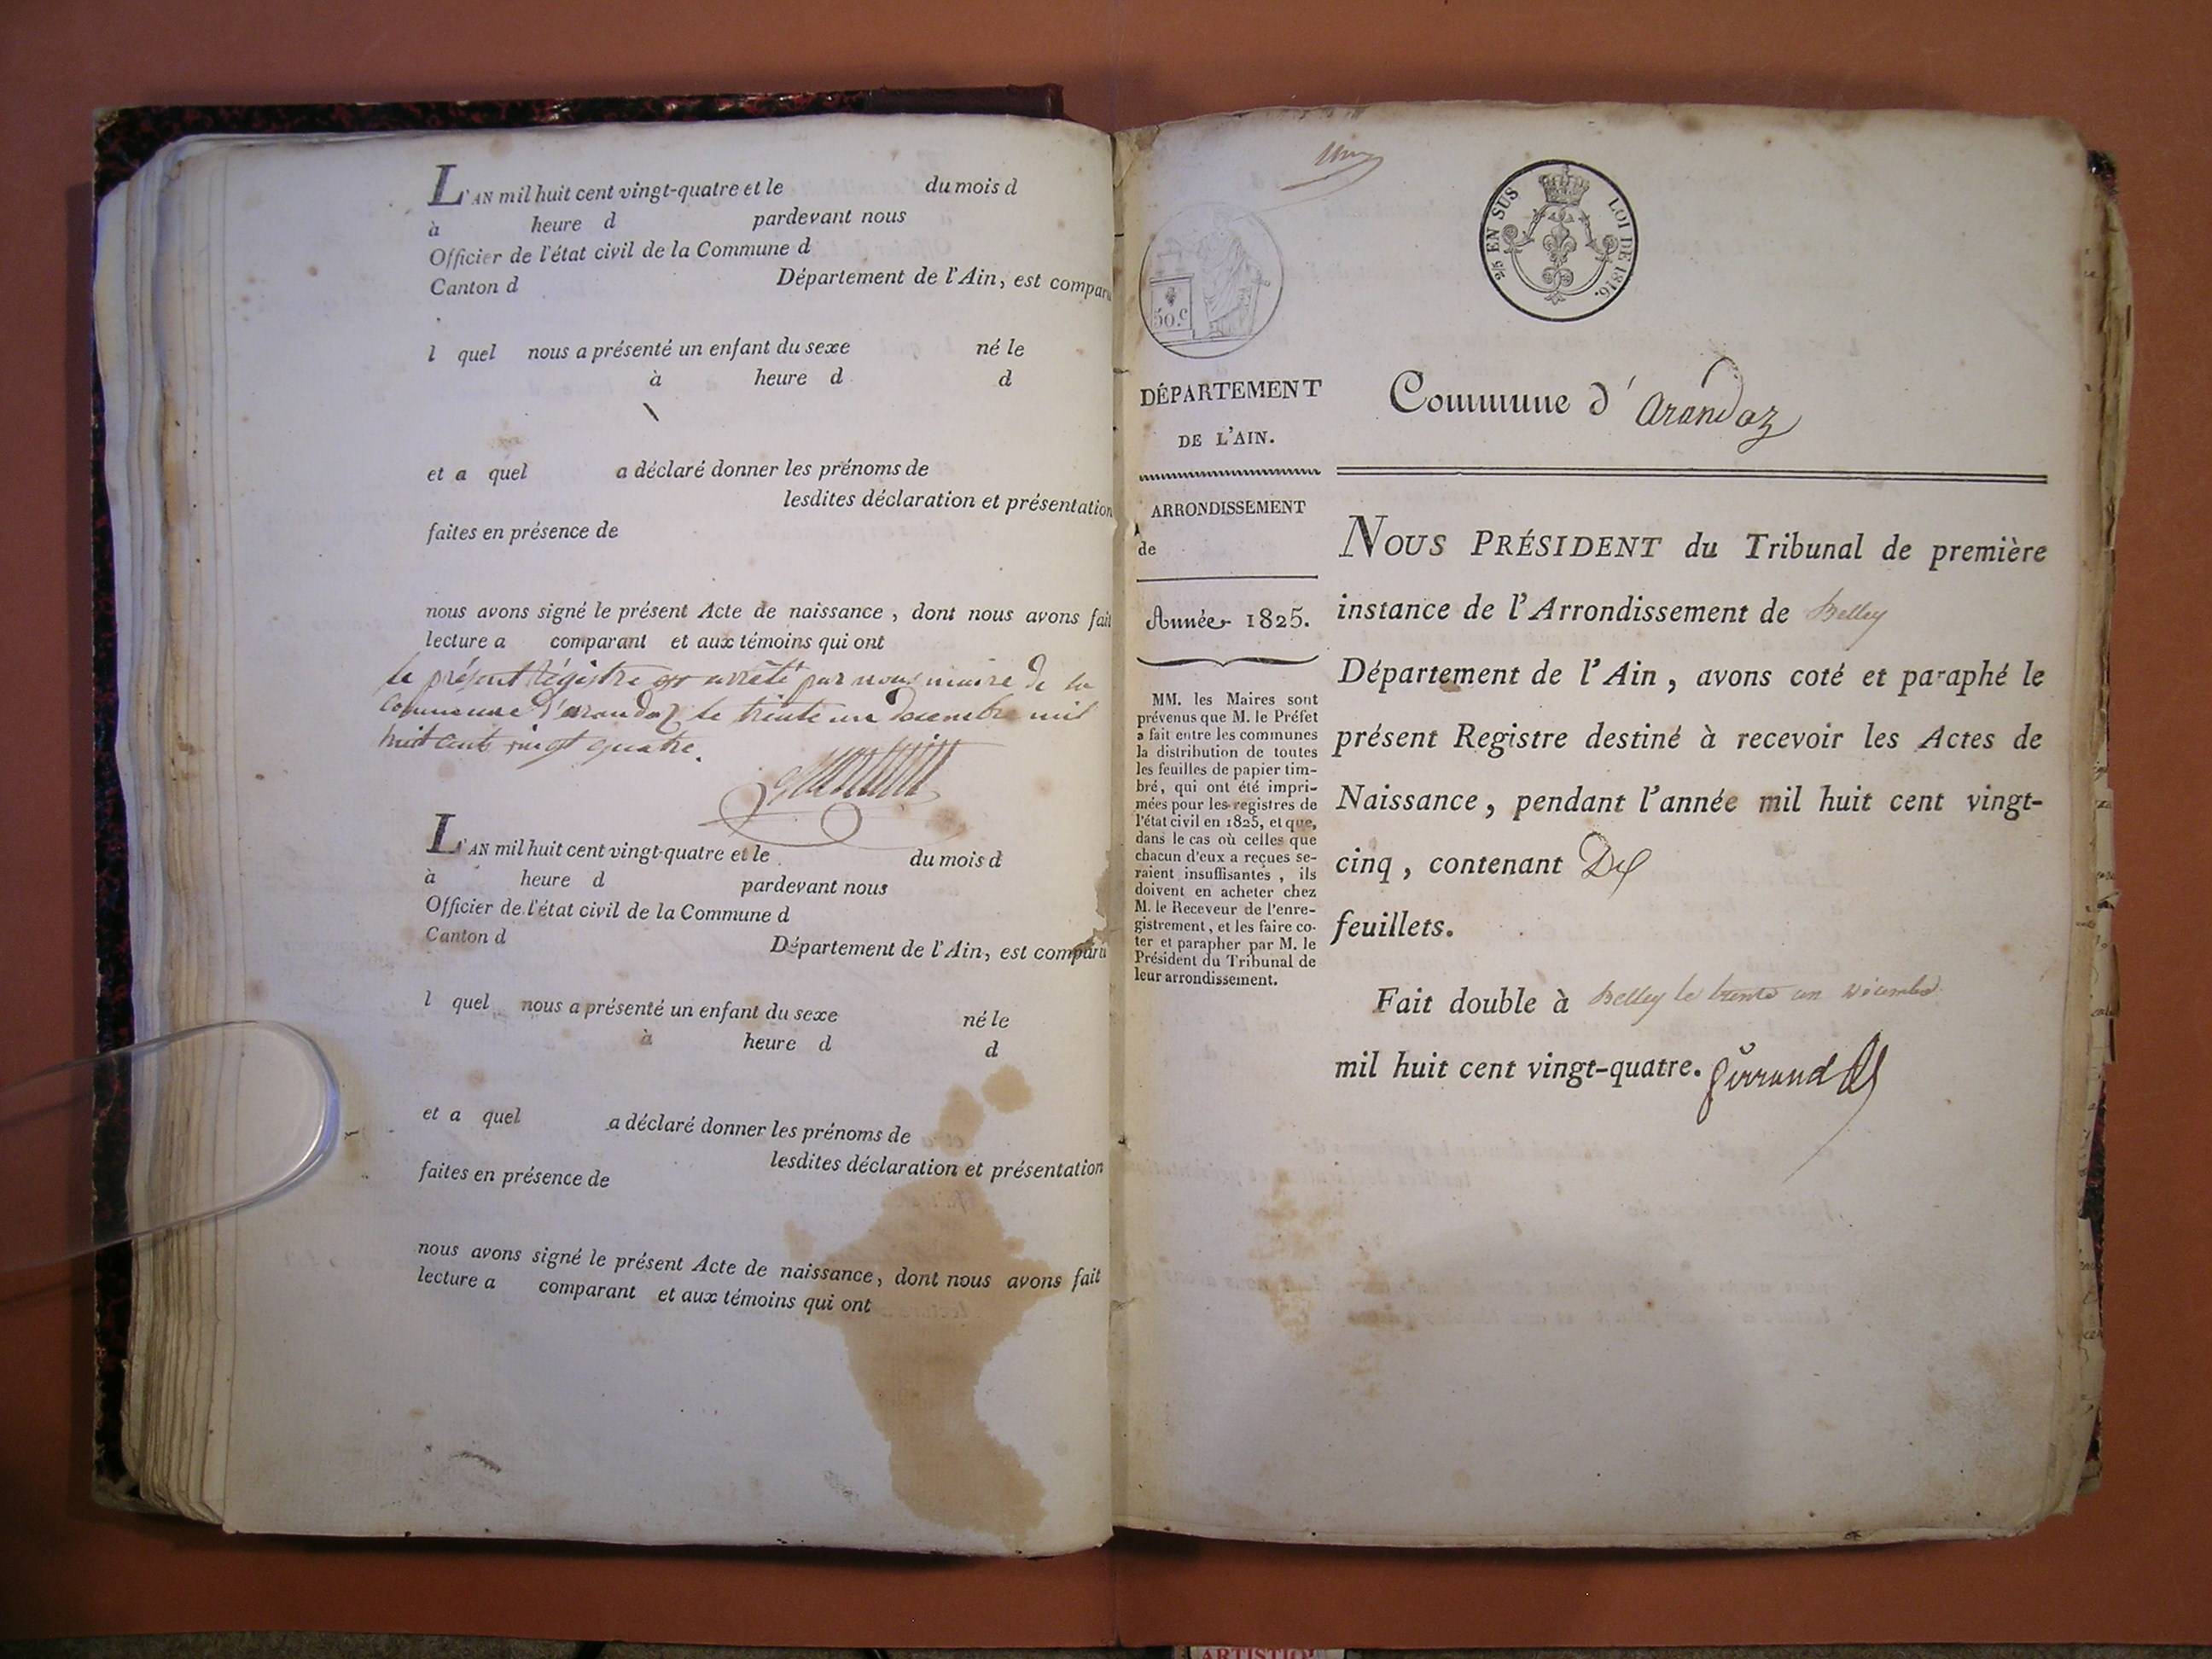 L'AN mil huit cent vingt-quatre et le du mois d
à heure d pardevant nous
Officier de l'état civil de la Commune d
Canton d Département de l'Ain, est comparu
l quel nous a présenté un enfant du sexe né le
à heure d d
et a quel a déclaré donner les prénoms de
lesdites déclaration et présentation
faites en présence de
nous avons signé le présent Acte de naissance, dont nous avons fait
lecture a comparant et aux témoins qui ont
le présent régistre est arrêté par nous maire de la
commune d'arandaz le trente un decembre mil
huit cent vingt quatre.
L'AN mil huit cent vingt-quatre et le du mois d
à heure d pardevant nous
Officier de l'état civil de la Commune d
Canton d Département de l'Ain, est comparu
l quel nous a présenté un enfant du sexe né le
à heure d d
et a quel a déclaré donner les prénoms de
lesdites déclaration et présentation
faites en présence de
nous avons signé le présent Acte de naissance, dont nous avons fait
lecture a comparant et aux témoins qui ont
EN SUS LOI DE 1816.
50.c
DÉPARTEMENT
DE L'AIN.
ARRONDISSEMENT
de
Année 1825.
MM. les Maires sont
prévenus que M. le Préfet
a fait entre les communes
la distribution de toutes
les feuilles de papier tim-
bré, qui ont été impri-
mées pour les registres de
l'état civil en 1825, et que,
dans le cas où celles que
chacun d'eux a reçues se-
raient insuffisantes, ils
doivent en acheter chez
M. le Receveur de l'enre-
gistrement, et les faire co-
ter et parapher par M. le
Président du Tribunal de
leur arrondissement.
Commune d'arandaz
NOUS PRÉSIDENT du Tribunal de première
instance de l'Arrondissement de Belley
Département de l'Ain, avons coté et paraphé le
présent Registre destiné à recevoir les Actes de
Naissance, pendant l'année mil huit cent vingt-
cinq, contenant Dix
feuillets.
Fait double à Belley le trente un Décembre
mil huit cent vingt-quatre.